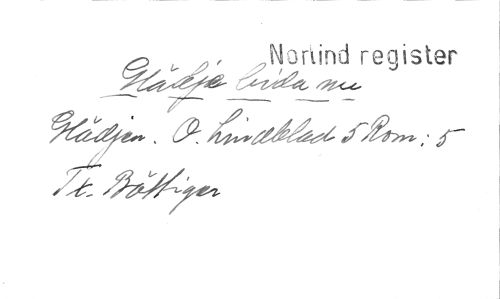 Norlind register
Glädje bida nu
Glädjen. O. Lindblad 5 Rom: 5
Tx. Böttiger